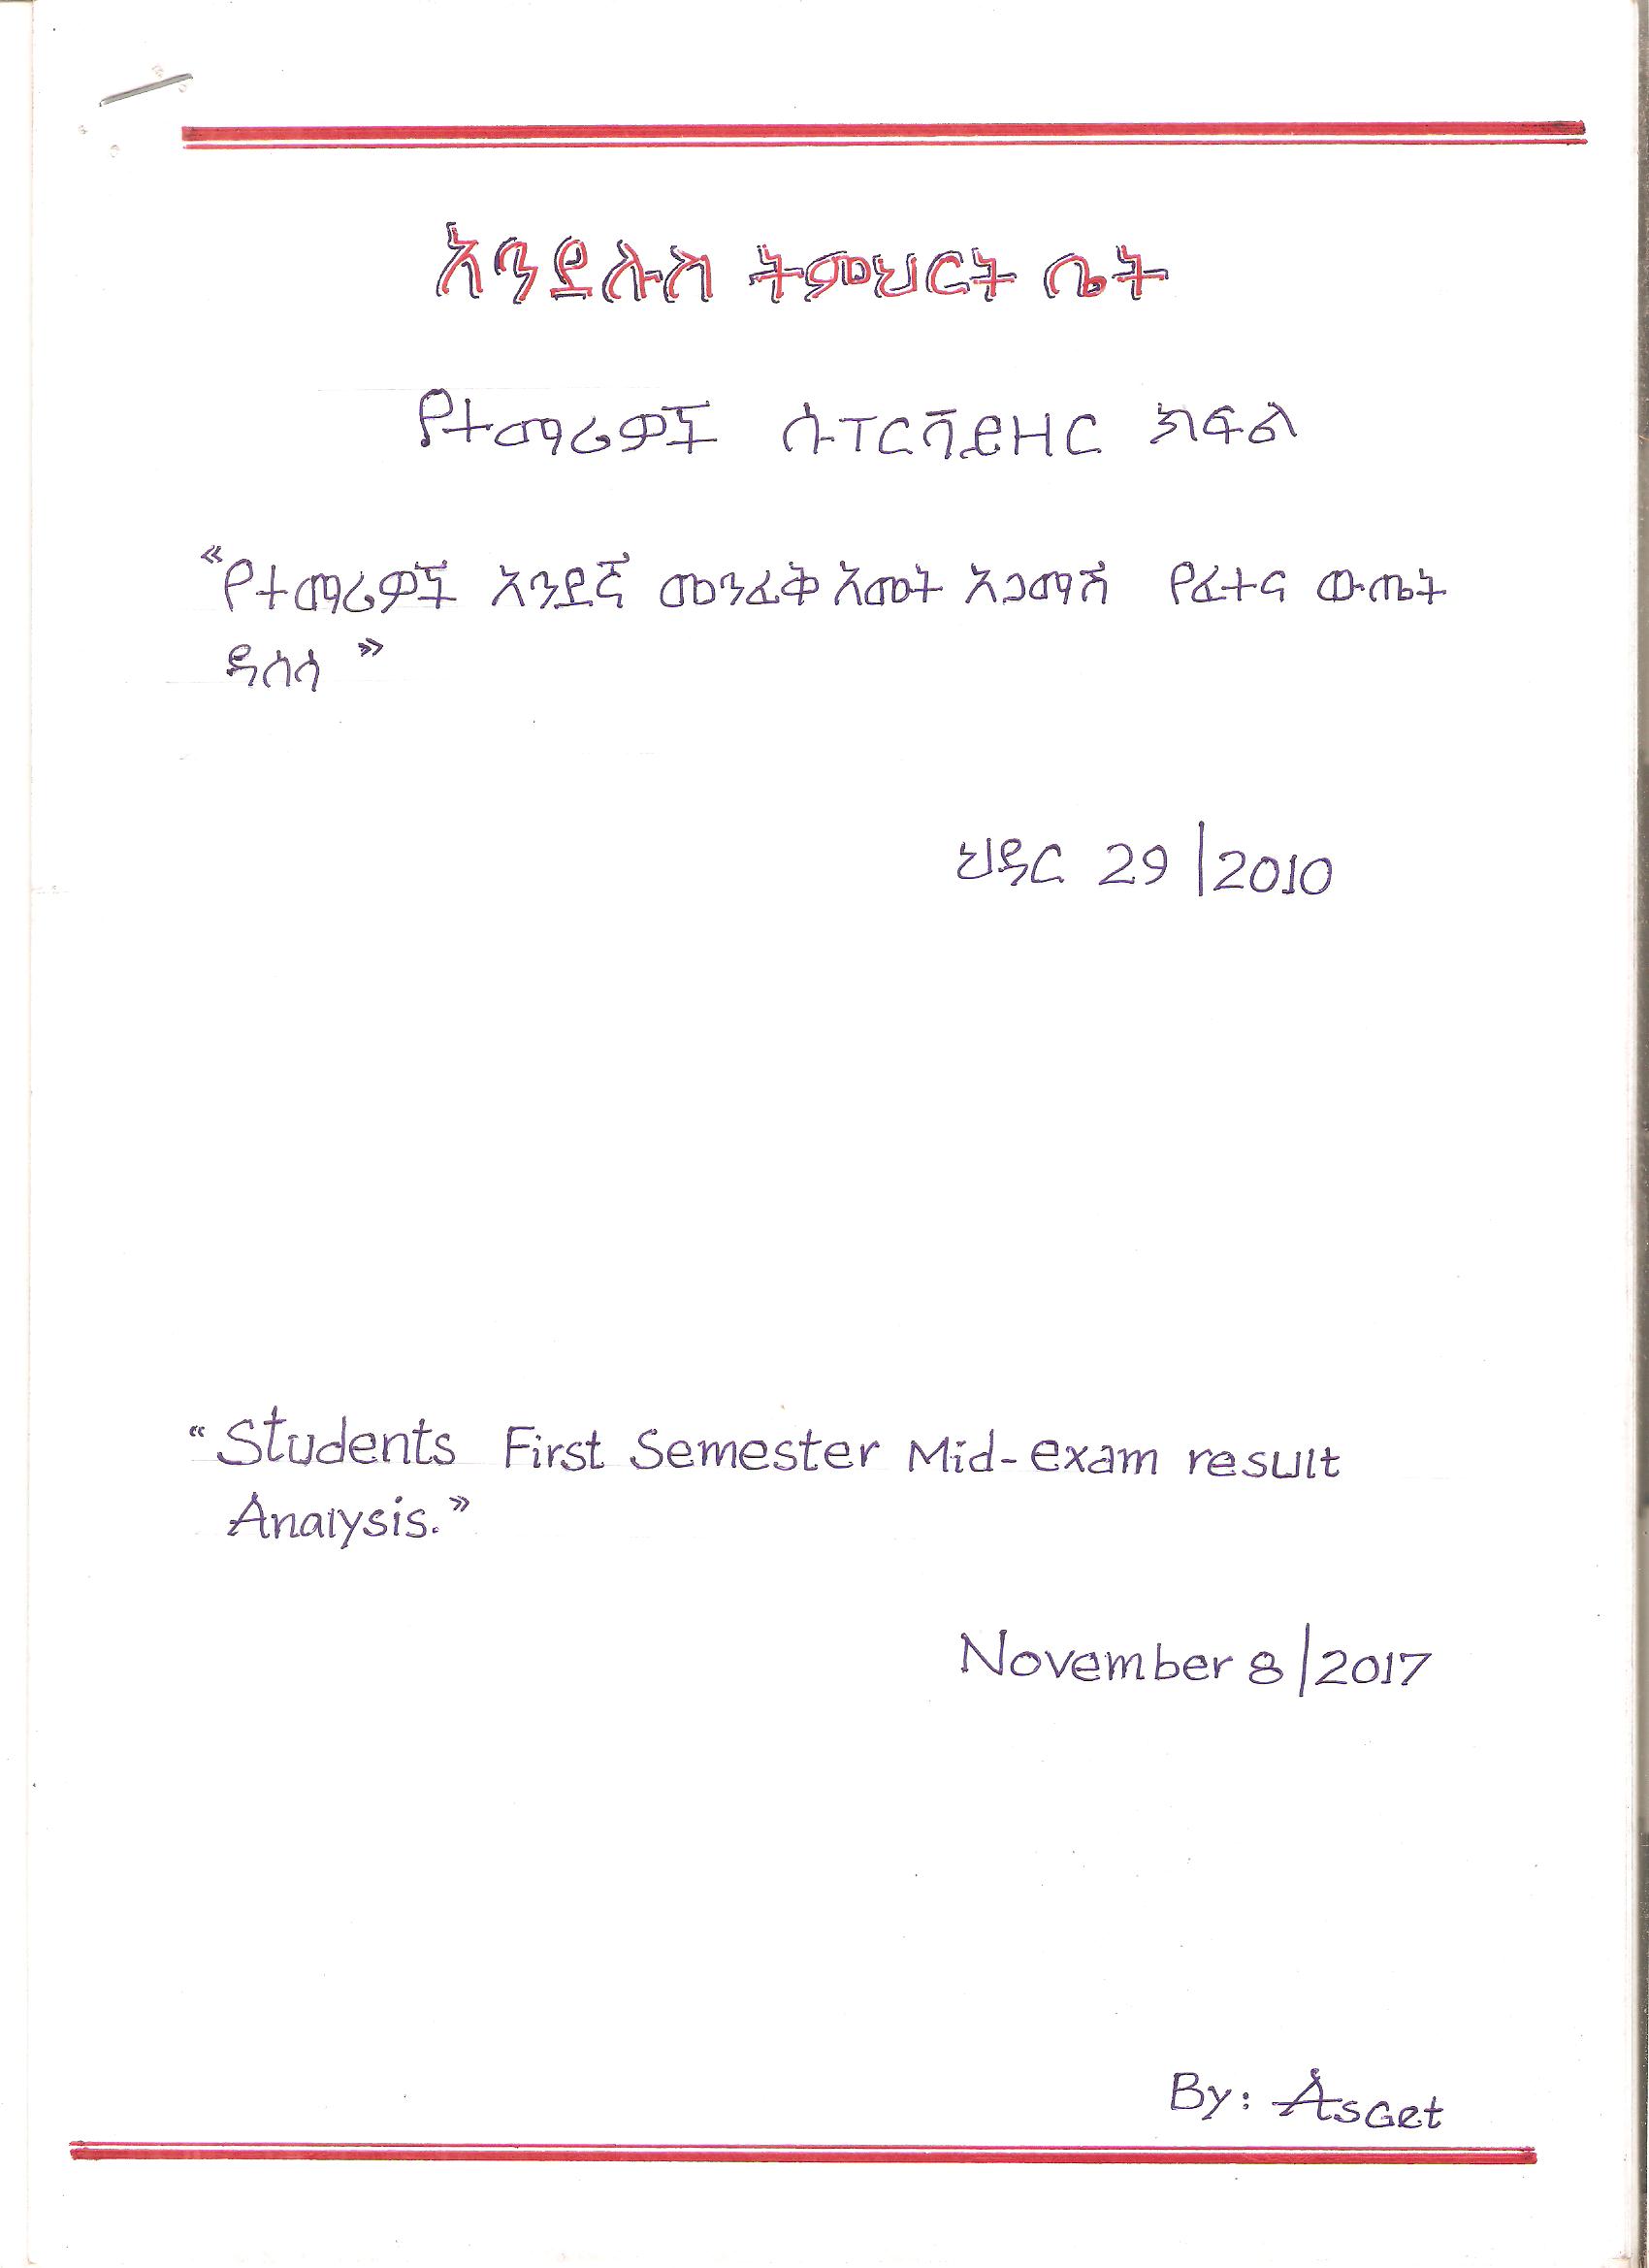 አንደሉስ ትምህርት ቤት
የተማሪዎች ሱፐርቫይዘር ክፍል
“የተማሪዎች አንደኛ መንፈቅ አመት አጋማሽ የፈተና ውጤት
ዳሰሳ”
ህዳር 29/2010
“Students First Semester Mid-exam result
Analysis.”
November 8/2017
By: AsGet